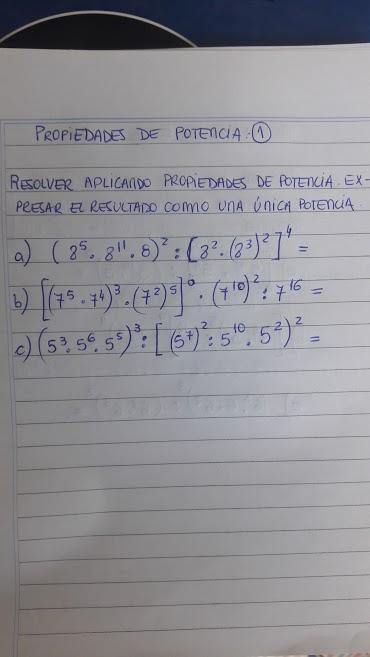 PROPIEDADES DE POTENCIA: ①
RESOLVER APLICANDO PROPIEDADES DE POTENCIA. EX-
PRESAR EL RESULTADO COMO UNA ÚNICA POTENCIA.
a) (8⁵ . 8¹¹ . 8)² : [8² . (8³)²]⁴ =
b) [(7⁵ . 7⁴)³ . (7²)⁵]⁰ . (7¹⁰)² : 7¹⁶ =
c) (5³ . 5⁶ . 5⁵)³ : [(5⁷)² : 5¹⁰ . 5²)² =